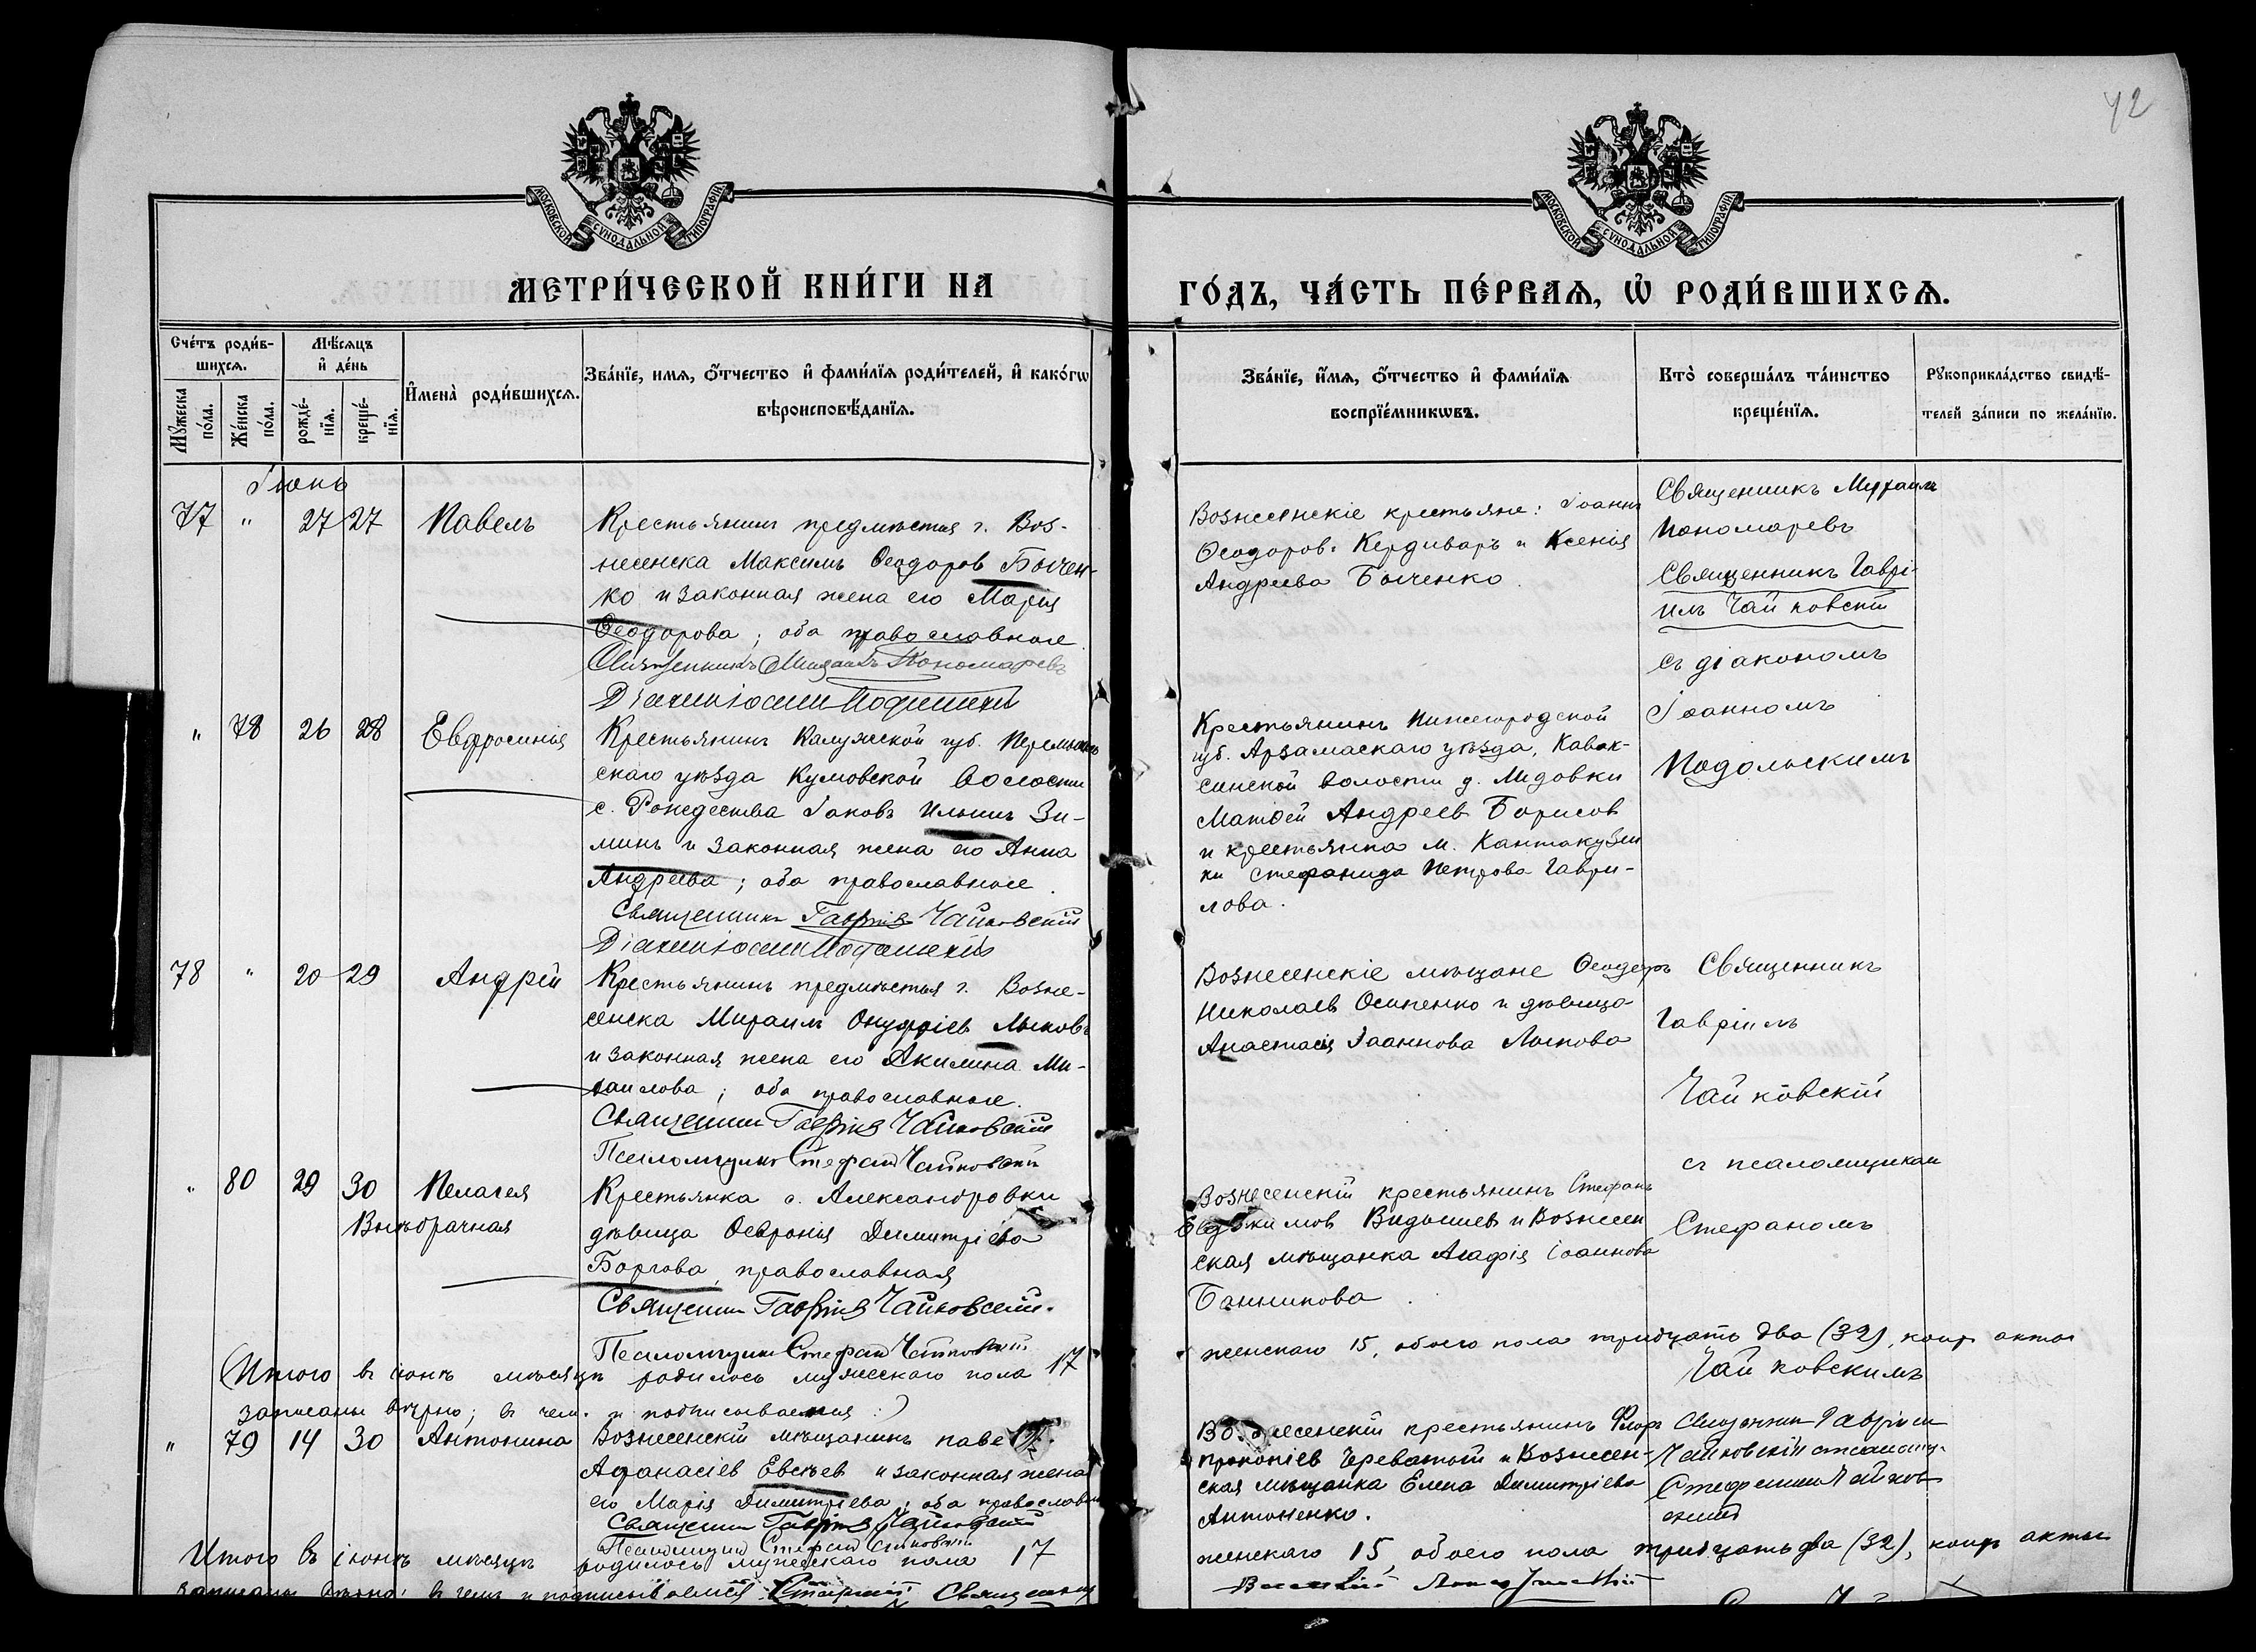 42
МОСКОВСКОЙ СѴНОДАЛЬНОЙ ТИПОГРАФІИ
МОСКОВСКОЙ СѴНОДАЛЬНОЙ ТИПОГРАФІИ
МЕТРИ́ЧЕСКОЙ КНИ́ГИ НА
ГО́ДЪ, ЧА́СТЬ ПЕ́РВАѦ, Ѡ҆ РОДИ́ВШИХСѦ.
Сче́тъ роди́в-
шихсѧ.
Мѣ́сяцъ
и҆ де́нь
Мꙋ́жеска
по́ла.
Же́нска
по́ла.
рожде́-
нїѧ.
креще́-
нїѧ.
И҆мена̀ роди́вшихсѧ.
Зва́нїе, имѧ, ѻ҆́тчество и҆ фами́лїѧ роди́телей, и҆ како́гѡ
вѣроисповѣ́данїѧ.
Зва́нїе, и҆́мѧ, ѻ҆́тчество и҆ фами́лїѧ
воспрїе́мникѡвъ.
Кто̀ соверша́лъ та́инство
креще́нїѧ.
Рꙋкоприкла́дство свидѣ́-
телей за́писи по жела́нїю.
Іюнь
77 " 27 27 Павелъ
Крестьянинъ предмѣстья г. Воз-
несенска Максимъ Ѳеодоров Бычен-
ко и законная жена его Марія
Ѳеодорова; оба православные
Священникъ Михаилъ Пономаревъ
Вознесенскіе крестьяне: Іоаннъ
Ѳеодоровъ Кердиваръ и Ксенія
Андреева Быченко.
Священникъ Михаилъ
Пономаревъ
Священникъ Гаврі-
илъ Чайковскій
съ діакономъ
Іоанномъ
Подольскимъ
" 78 26 28 Евфросинія
Крестьянинъ Калужской губ. Перемышль
скаго уѣзда Кумовской волости
с. Рождества Іаковъ Ильинъ Зи-
минъ и законная жена его Анна
Андреева; оба православные.
Священникъ Гавріилъ Чайковскій
Крестьянинъ Нижегородской
губ. Арзамаскаго уѣзда, Кавак-
синской волости д. Мидовки
Матѳей Андреев Борисов
и крестьянка м. Кантакузен
ки Стефанида Петрова Гаври-
лова.
78 " 20 29 Андрей
Крестьянинъ предмѣстья г. Возне-
сенска Михаилъ Онуфріев Лысковъ
и законная жена его Акилина Ми-
хаилова; оба православные.
Священникъ Гавріилъ Чайковскій
Псаломщикъ Стефанъ Чайковскій
Вознесенскіе мѣщане Ѳеодоръ
Николаев Осипенко и дѣвица
Анастасія Іоаннова Лыскова
Священникъ
Гавріилъ
Чайковскій
съ псаломщикам
Стефаномъ
Чайковскимъ
" 80 29 30 Пелагея
Внѣбрачная
Крестьянка с. Александровки
дѣвица Ѳевронія Димитріева
Боргова, православная
Священникъ Гавріилъ Чайковскій.
Псаломщикъ Стефанъ Чайковскій
Вознесенскій крестьянинъ Стефанъ
Евдокимов Видышев и Вознесен
ская мѣщанка Агафія Іоаннова
Банникова
(Итого въ іюнѣ мѣсяцѣ родилось мужескаго пола 17
женскаго 15, обоего пола тридцать два (32), коихъ акты
записаны вѣрно; въ чем. и подписываемся:)
" 79 14 30 Антонина
Вознесенскій мѣщанинъ Паве
Афанасіев Евсѣев и законная жена
его Марія Димитріева; оба православн
Священникъ Гавріилъ Чайковскій
Псаломщикъ Стефанъ Чайковскій
Вознесенскій крестьянинъ Флоръ
Прокопіев Череватый и Вознесен-
ская мѣщанка Елена Димитріева
Антоненко.
Священник Гавріилъ
Чайковскій с псаломщ.
Стефаномъ Чайков
скимъ
Итого въ іюнѣ мѣсяцѣ родилось мужескаго пола 17
женскаго 15, обоего пола тридцать два (32), коихъ акты
записаны вѣрно; въ чемъ и подписываемся: Старшій Священникъ